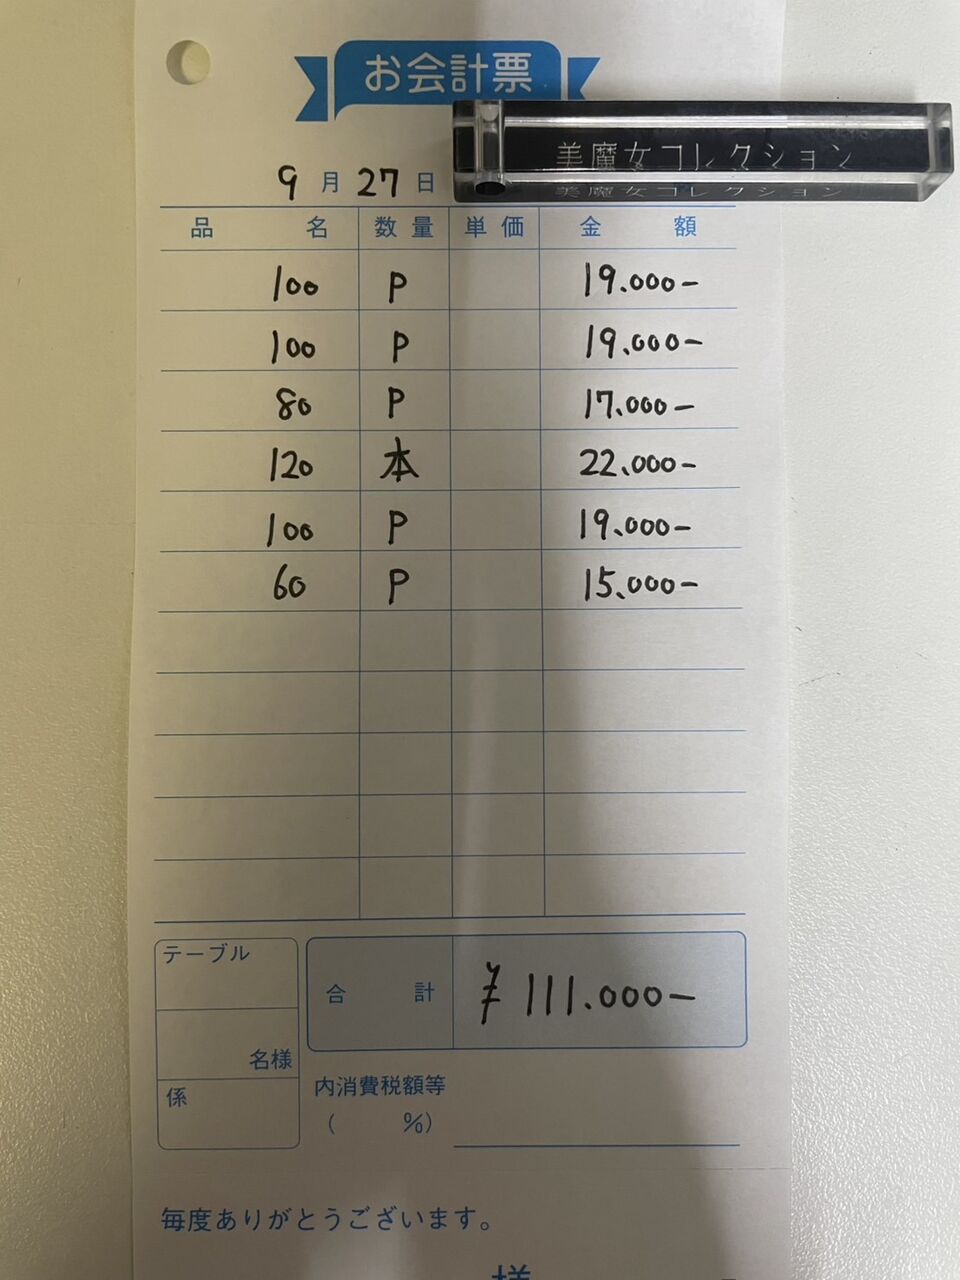 お会計票
美魔女コレクション
9月27日
品名 数量 単価 金額
100 P 19.000-
100 P 19.000-
80 P 17.000-
120 本 22.000-
100 P 19.000-
60 P 15.000-
テーブル
合計 ¥111.000-
名様
係
内消費税額等
( %)
毎度ありがとうございます。
様